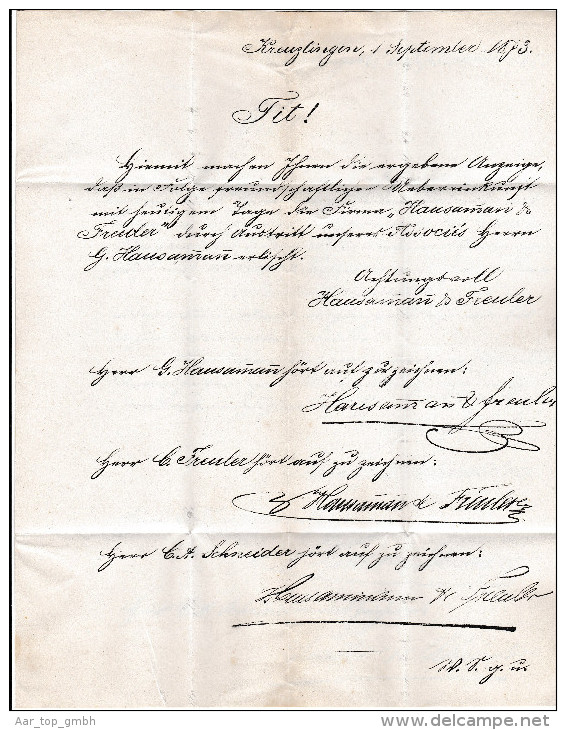 Kreuzlingen, 1 September 1873.
Tit!
Hiermit machen Ihnen die ergebene Anzeige,
daß in Folge freundschaftlicher Uebereinkunft
mit heutigem Tage die Firma „Hausam̄an &
Freuler" durch Austritt unseres Associés Herrn
G. Hausam̄an̄ erlischt.
Achtungsvoll
Hausam̄an̄ & Freuler
Herr G. Hausam̄an̄ hört auf zu zeichnen:
Hausam̄an & Freuler
Herr C. Freuler hört auf zu zeichnen:
Hausam̄an & Freuler
Herr C. A. Schneider hört auf zu zeichnen:
Hausammann & Freuler
W. S. g. u.
Aar_top_gmbh
www.delcampe.net